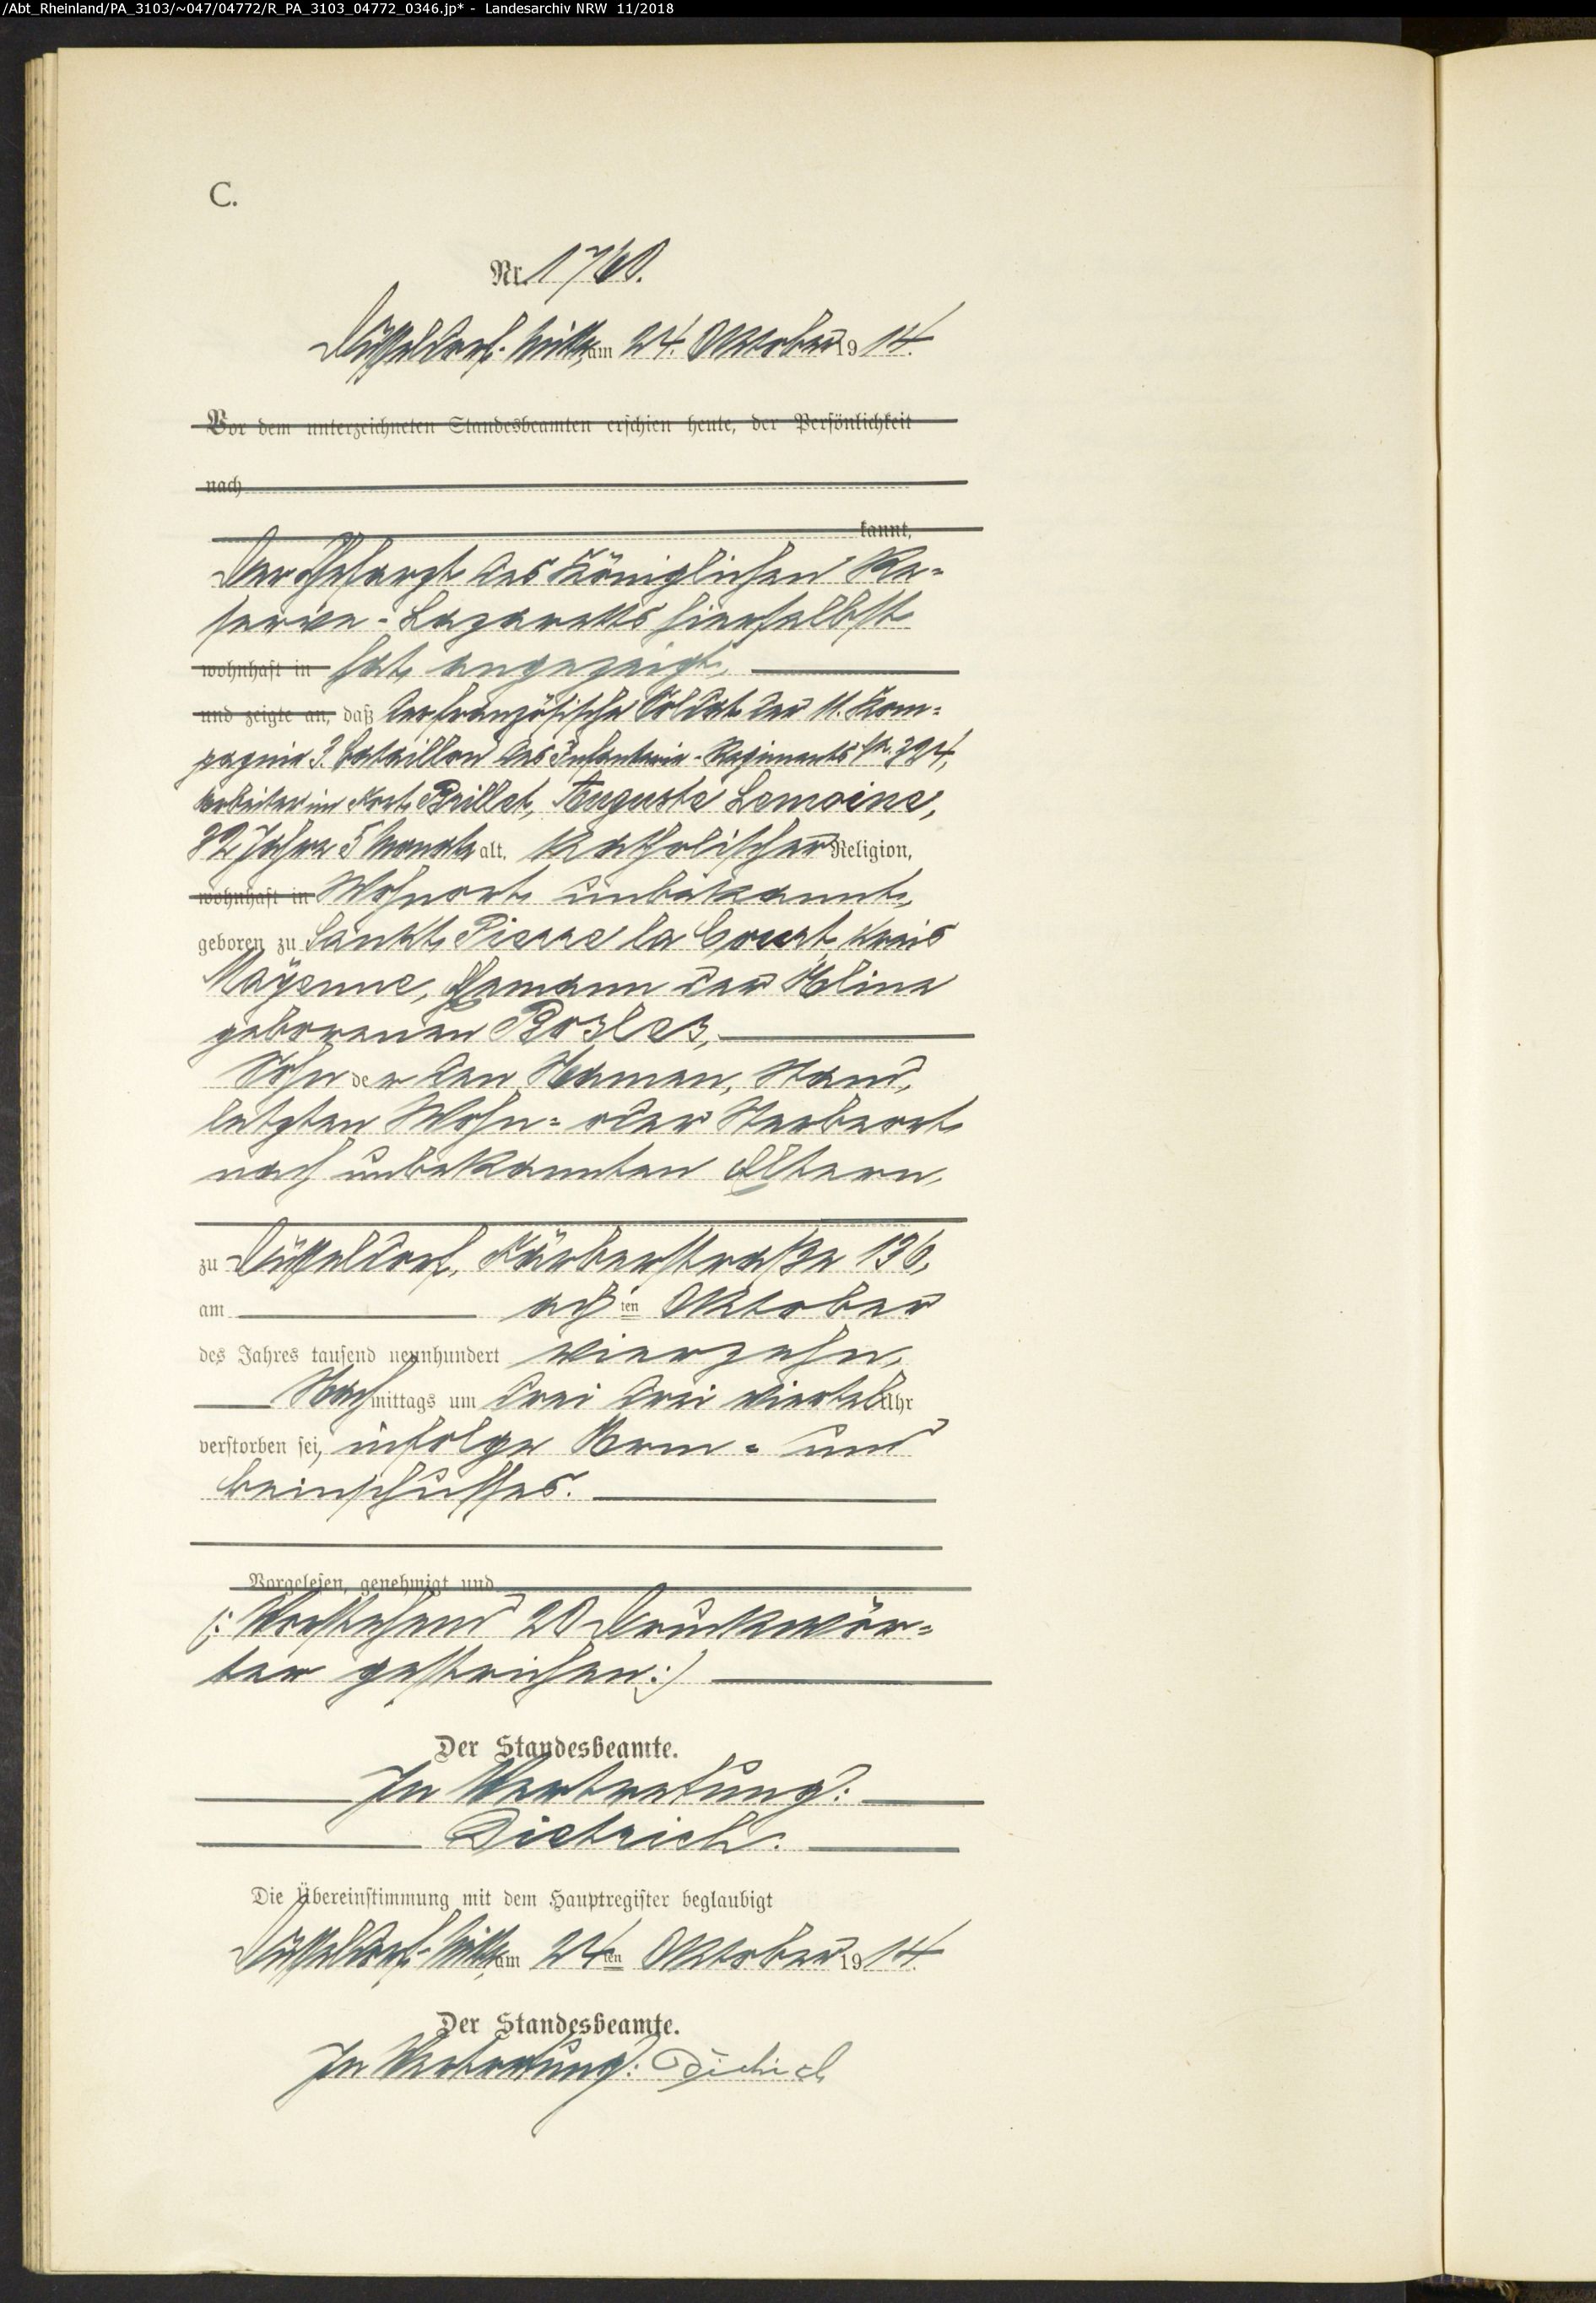 /Abt_Rheinland/PA_3103/~047/04772/R_PA_3103_04772_0346.jp* - Landesarchiv NRW 11/2018
C.
Nr. 1760.
Düsseldorf-Mitte, am 24. Oktober 1914.
Vor dem unterzeichneten Standesbeamten erschien heute, der Persönlichkeit
nach
kannt,
Der Chefarzt des Königlichen Re-
serve-Lazaretts hierselbst
wohnhaft in hat angezeigt,
und zeigte an, daß der französische Soldat der 11. Kom-
pagnie 3. Bataillon des Infanterie-Regiments Nr. 294,
Arbeiter im Brillet, Auguste Lemoine,
32 Jahre 5 Monate alt, katholischer Religion,
wohnhaft in Wohnort unbekannt,
geboren zu Sankt Pierre la Court, Kreis
Mayenne, Ehemann der Aline
geborenen
Sohn der den Namen, Stand,
letzten Wohn- oder Sterbeort
nach unbekannten Eltern,
zu Düsseldorf, Färberstraße 136,
am achten Oktober
des Jahres tausend neunhundert vierzehn,
Nachmittags um drei drei viertel Uhr
verstorben sei, infolge Arm- und
Beinschusses.
Vorgelesen, genehmigt und
(: Vorstehend 20 Druckwör-
ter gestrichen :)
Der Standesbeamte.
In Vertretung:
Dietrich.
Die Übereinstimmung mit dem Hauptregister beglaubigt
Düsseldorf-Mitte, am 24ten Oktober 1914.
Der Standesbeamte.
In Vertretung: Dietrich